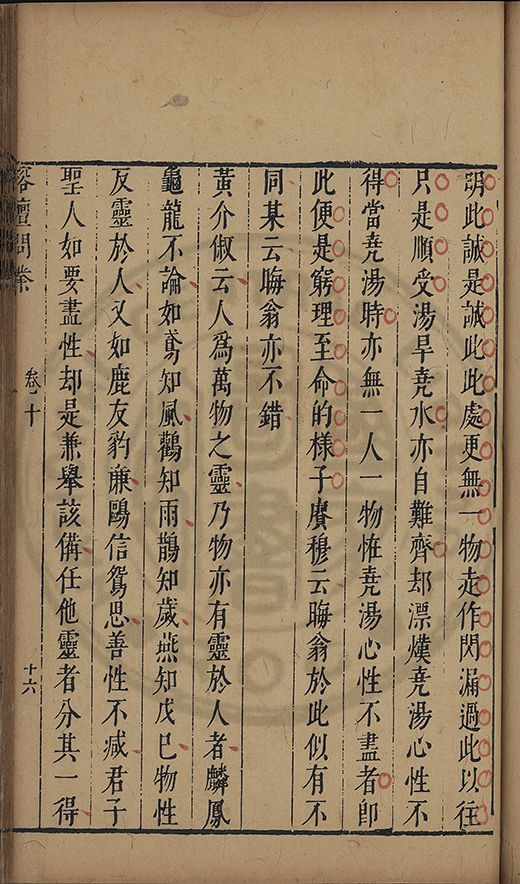 明此誠是誠此此處更無一物走作閃漏過此以往
只是順受湯旱堯水亦自難齊却漂熯堯湯心性不
得當堯湯時亦無一人一物惟堯湯心性不盡者卽
此便是窮理至命的樣子賡穆云晦翁於此似有不
同某云晦翁亦不錯
黃介俶云人爲萬物之靈乃物亦有靈於人者麟鳳
龜龍不論如鳶知風鸛知雨鵲知歲燕知戊己物性
反靈於人又如鹿友豹廉鷗信鴛思善性不减君子
聖人如要盡性却是兼舉該備任他靈者分其一得
榕壇問業
卷十
十六